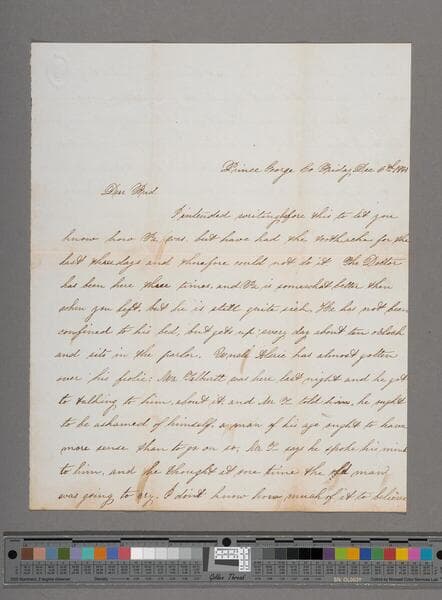 Prince George Co Friday Dec 6th
Dear Bud
I intended writing before this to let you
know how Pa was. but have had the toothache for the
last three days and therefore could not do it The Doctor
has been here three times, and Pa is somewhat better than
when you left, but he is still quite sick. He has not been
confined to his bed, but gets up every day about ten oclock
and sits in the parlor. has almost gotten
over his frolic: Mr Talburtt was here last night and he got
to talking to him about it and Mr T told him, he ought
to be ashamed of himself, a man of his age ought to have
more sense than to go on so, Mr T. says he spoke his mind
to him, and he thought at one time the old man
was going to cry, I don't know how much of it to believe
Golden Thread